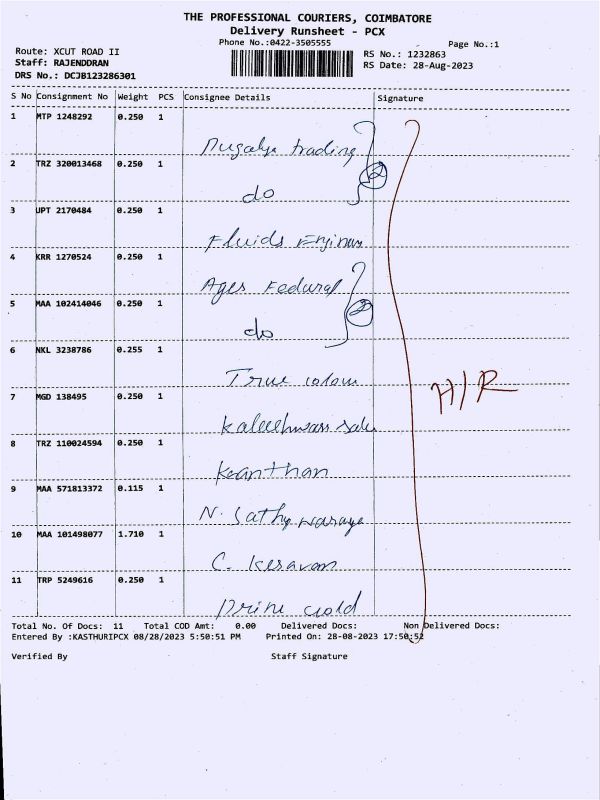 THE PROFESSIONAL COURIERS, COIMBATORE
Delivery Runsheet - PCX
Phone No.:0422-3505555
Page No.:1
Route: XCUT ROAD II
RS No.: 1232863
Staff: RAJENDDRAN
RS Date: 28-Aug-2023
DRS No.: DCJB123286301
S No Consignment No Weight PCS Consignee Details Signature
1 MTP 1248292 0.250 1
trading
2 TRZ 320013468 0.250 1
2
do
3 JPT 2170484 0.250 1
Fluids
4 KRR 1270524 0.250 1
Ages Fedural
5 MAA 102414046 0.250 1
2
do
6 NKL 3238786 0.255 1
True colour
7 MGD 138495 0.250 1
H/R
8 TRZ 110024594 0.250 1
Keanthan
9 MAA 571813372 0.115 1
N. Sathy
10 MAA 101498077 1.710 1
C. Kesavan
11 TRP 5249616 0.250 1
gold
Total No. Of Docs: 11 Total COD Amt: 0.00 Delivered Docs: Non Delivered Docs:
Entered By :KASTHURIPCX 08/28/2023 5:50:51 PM Printed On: 28-08-2023 17:50:52
Verified By Staff Signature